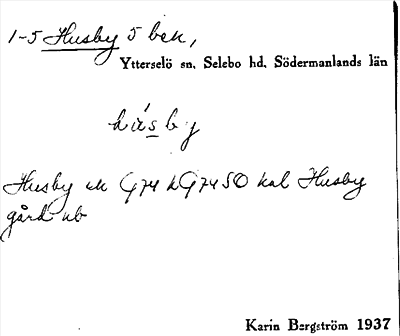 1-5 Husby 5 ben,
Ytterselö sn. Selebo hd. Södermanlands län
husby
Husby ek G74 hG74SO kal Husby
gård ub
Karin Bergström 1937